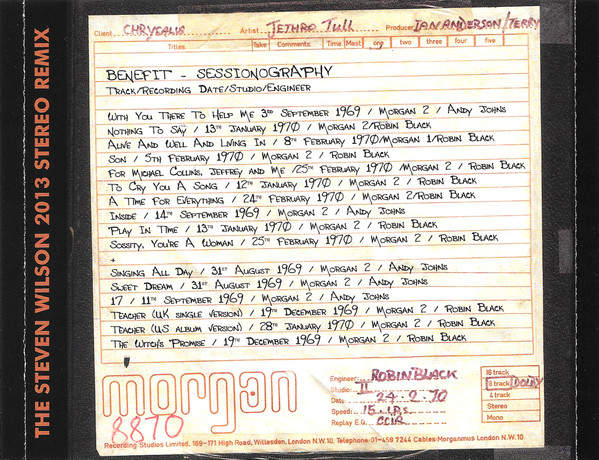 THE STEVEN WILSON 2013 STEREO REMIX
Client CHRYSALIS Artist JETHRO TULL Producer IAN ANDERSON/TERRY
Titles Take Comments: Time. Mast. one two three four five
BENEFIT - SESSIONOGRAPHY
TRACK/RECORDING DATE/STUDIO/ENGINEER
WITH YOU THERE TO HELP ME 3RD SEPTEMBER 1969 / MORGAN 2 / ANDY JOHNS
NOTHING TO SAY / 13TH JANUARY 1970 / MORGAN 2/ROBIN BLACK
ALIVE AND WELL AND LIVING IN / 8TH FEBRUARY 1970/MORGAN 1/ROBIN BLACK
SON / 5TH FEBRUARY 1970 / MORGAN 2 / ROBIN BLACK
FOR MICHAEL COLLINS, JEFFREY AND ME /25TH FEBRUARY 1970 / MORGAN 2 / ROBIN BLACK
TO CRY YOU A SONG / 12TH JANUARY 1970 / MORGAN 2 / ROBIN BLACK
A TIME FOR EVERYTHING / 24TH FEBRUARY 1970 / MORGAN 2/ROBIN BLACK
INSIDE / 14TH SEPTEMBER 1969 / MORGAN 2 / ANDY JOHNS
PLAY IN TIME / 13TH JANUARY 1970 / MORGAN 2 / ROBIN BLACK
SOSSITY, YOU'RE A WOMAN / 25TH FEBRUARY 1970 / MORGAN 2 / ROBIN BLACK
+
SINGING ALL DAY / 31ST AUGUST 1969 / MORGAN 2 / ANDY JOHNS
SWEET DREAM / 31ST AUGUST 1969 / MORGAN 2 / ANDY JOHNS
17 / 11TH SEPTEMBER 1969 / MORGAN 2 / ANDY JOHNS
TEACHER (UK SINGLE VERSION) / 19TH DECEMBER 1969 / MORGAN 2 / ROBIN BLACK
TEACHER (US ALBUM VERSION) / 28TH JANUARY 1970 / MORGAN 2 / ROBIN BLACK
THE WITCH'S PROMISE / 19TH DECEMBER 1969 / MORGAN 2 / ROBIN BLACK
morgan
8870
Engineer ROBIN BLACK
Studio: II
Date 24-2-70
Speed: 15. I.P.S.
Replay E.Q. CCIR
16 track
8 track DOLBY
4 track
Stereo
Mono
Recording Studios Limited, 169-171 High Road, Willesden, London N.W.10. Telephone 01-459 7244 Cables Morganmus London N.W.10.